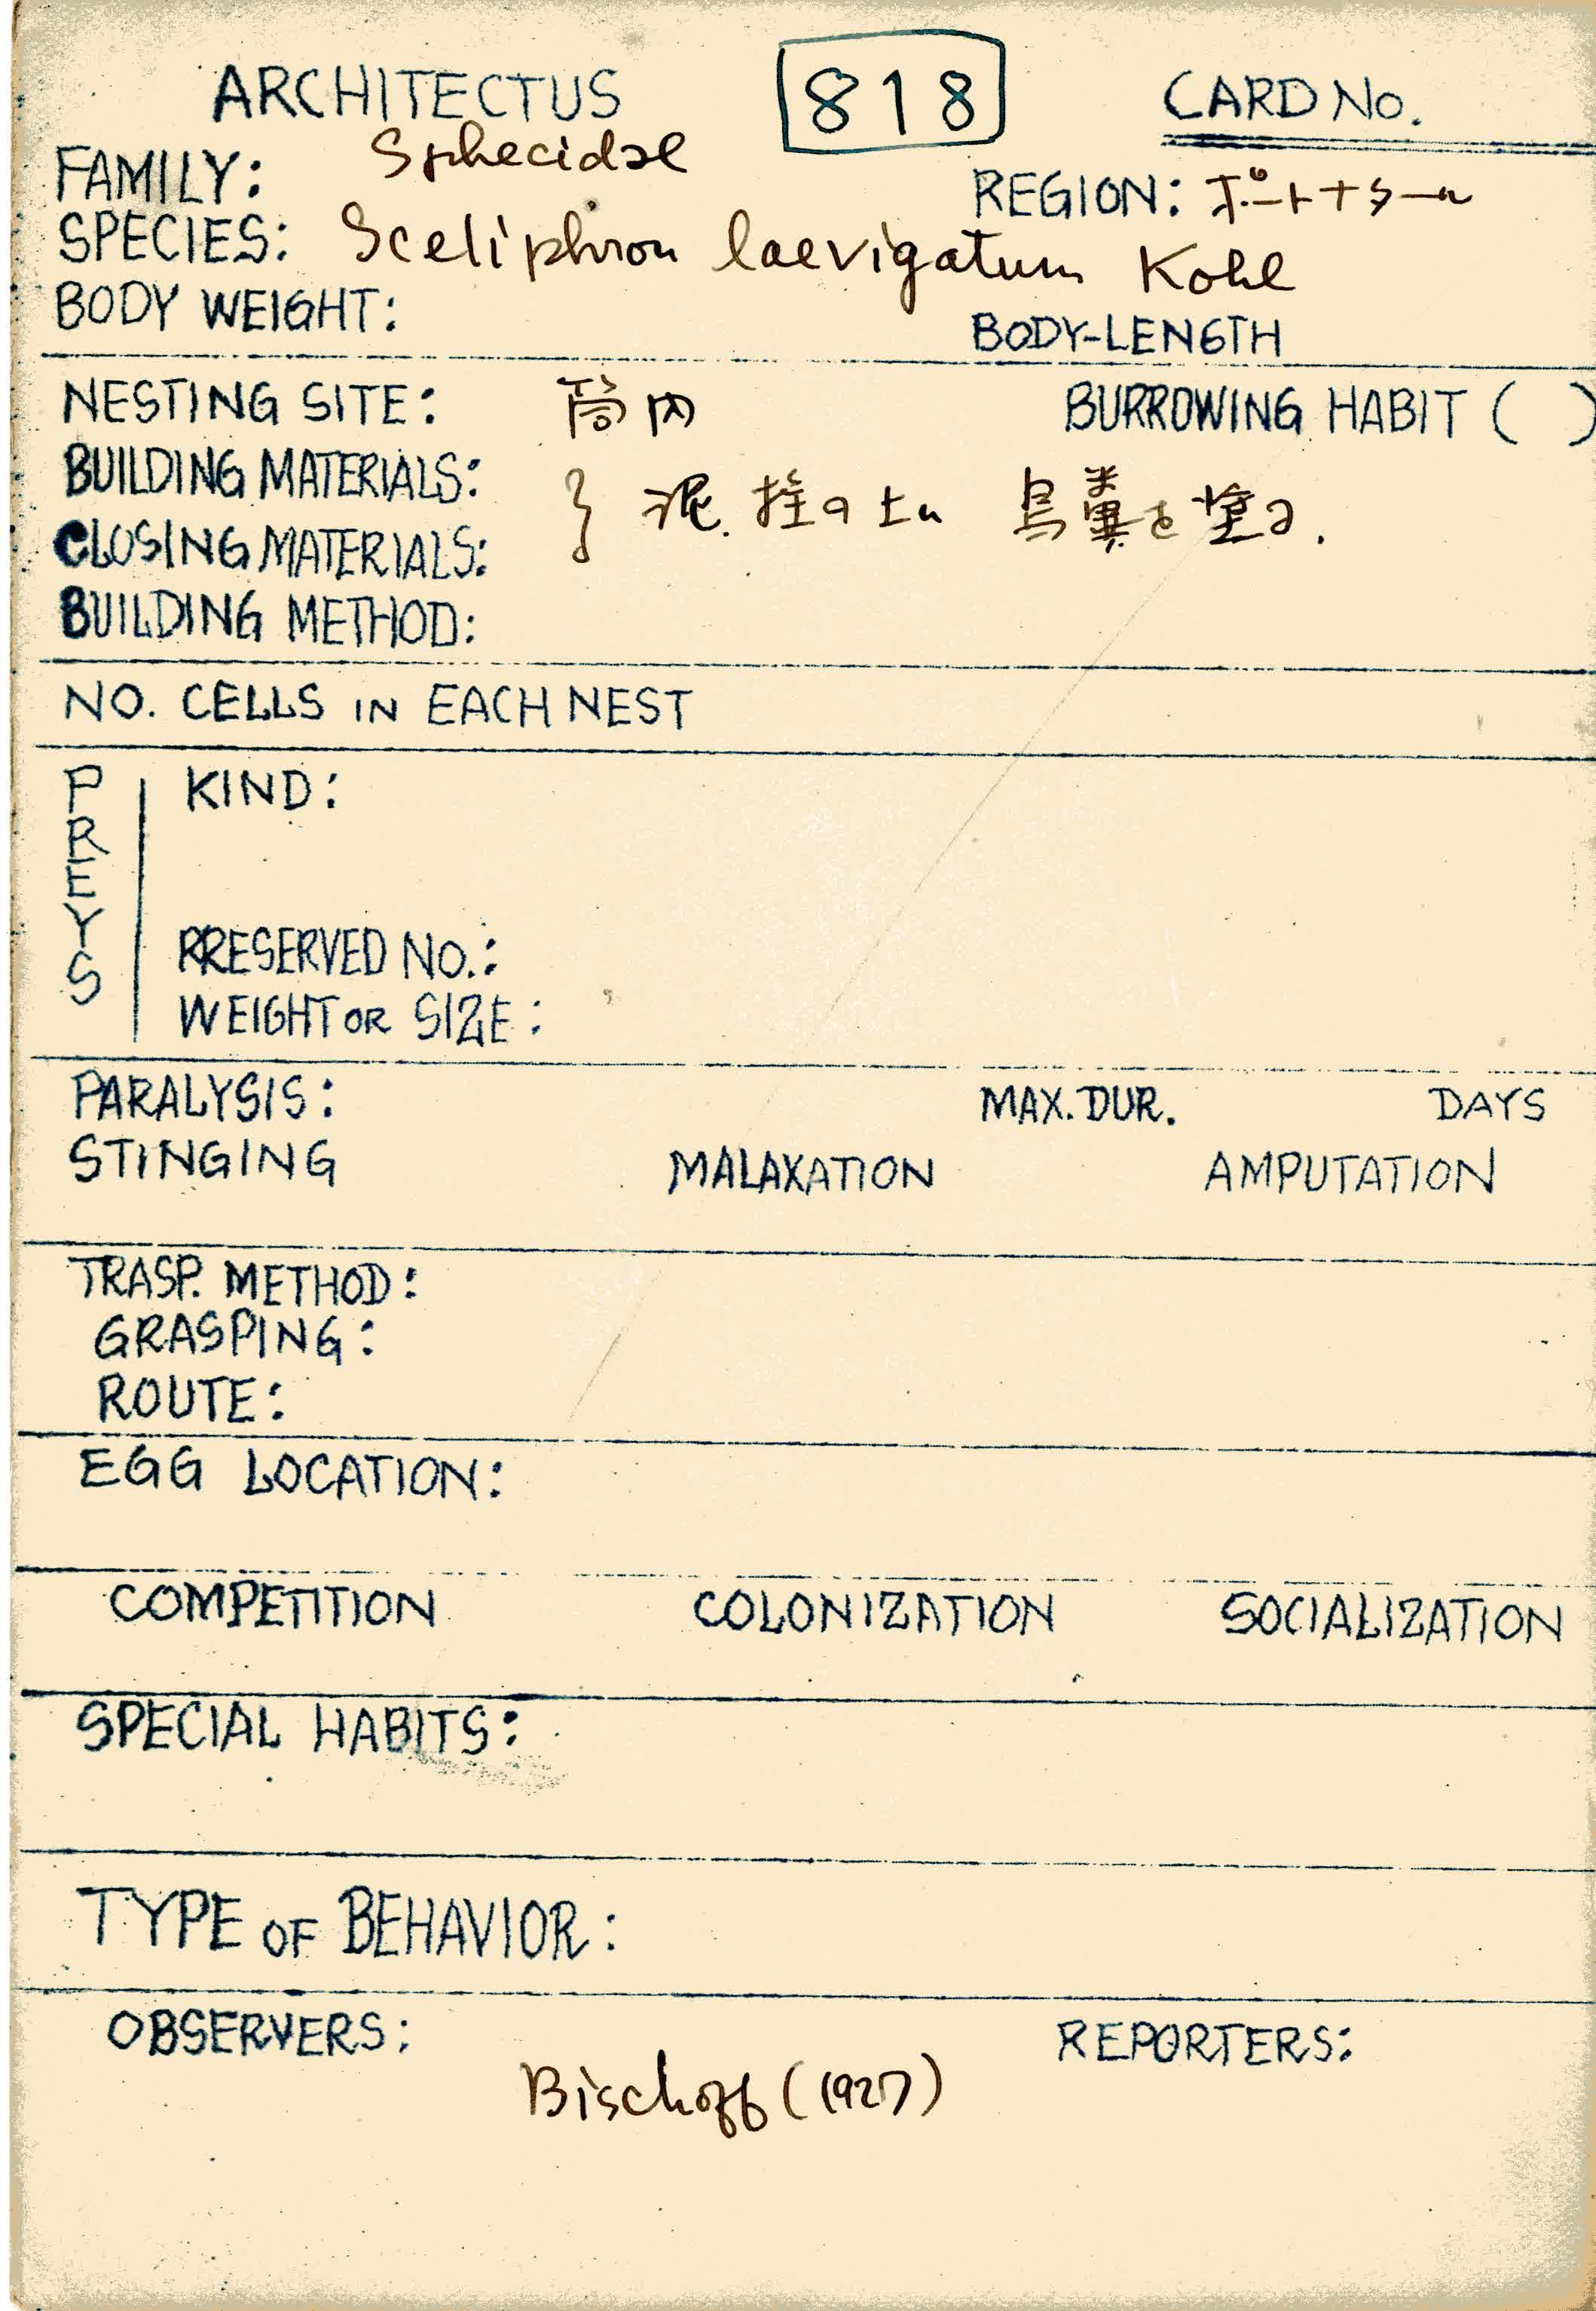 ARCHITECTUS 818 CARD No.
FAMILY: Sphecidae
REGION: ポートナタール
SPECIES: Sceliphron laevigatum Kohl
BODY WEIGHT: BODY-LENGTH
NESTING SITE: 筒内 BURROWING HABIT ( )
BUILDING MATERIALS:
} 泥. 栓の上に 鳥糞を塗る.
CLOSING MATERIALS:
BUILDING METHOD:
NO. CELLS IN EACH NEST
PREYS
KIND:
PRESERVED NO.:
WEIGHT OR SIZE:
PARALYSIS: MAX. DUR. DAYS
STINGING MALAXATION AMPUTATION
TRASP. METHOD:
GRASPING:
ROUTE:
EGG LOCATION:
COMPETITION COLONIZATION SOCIALIZATION
SPECIAL HABITS:
TYPE OF BEHAVIOR:
OBSERVERS: REPORTERS:
Bischoff (1927)